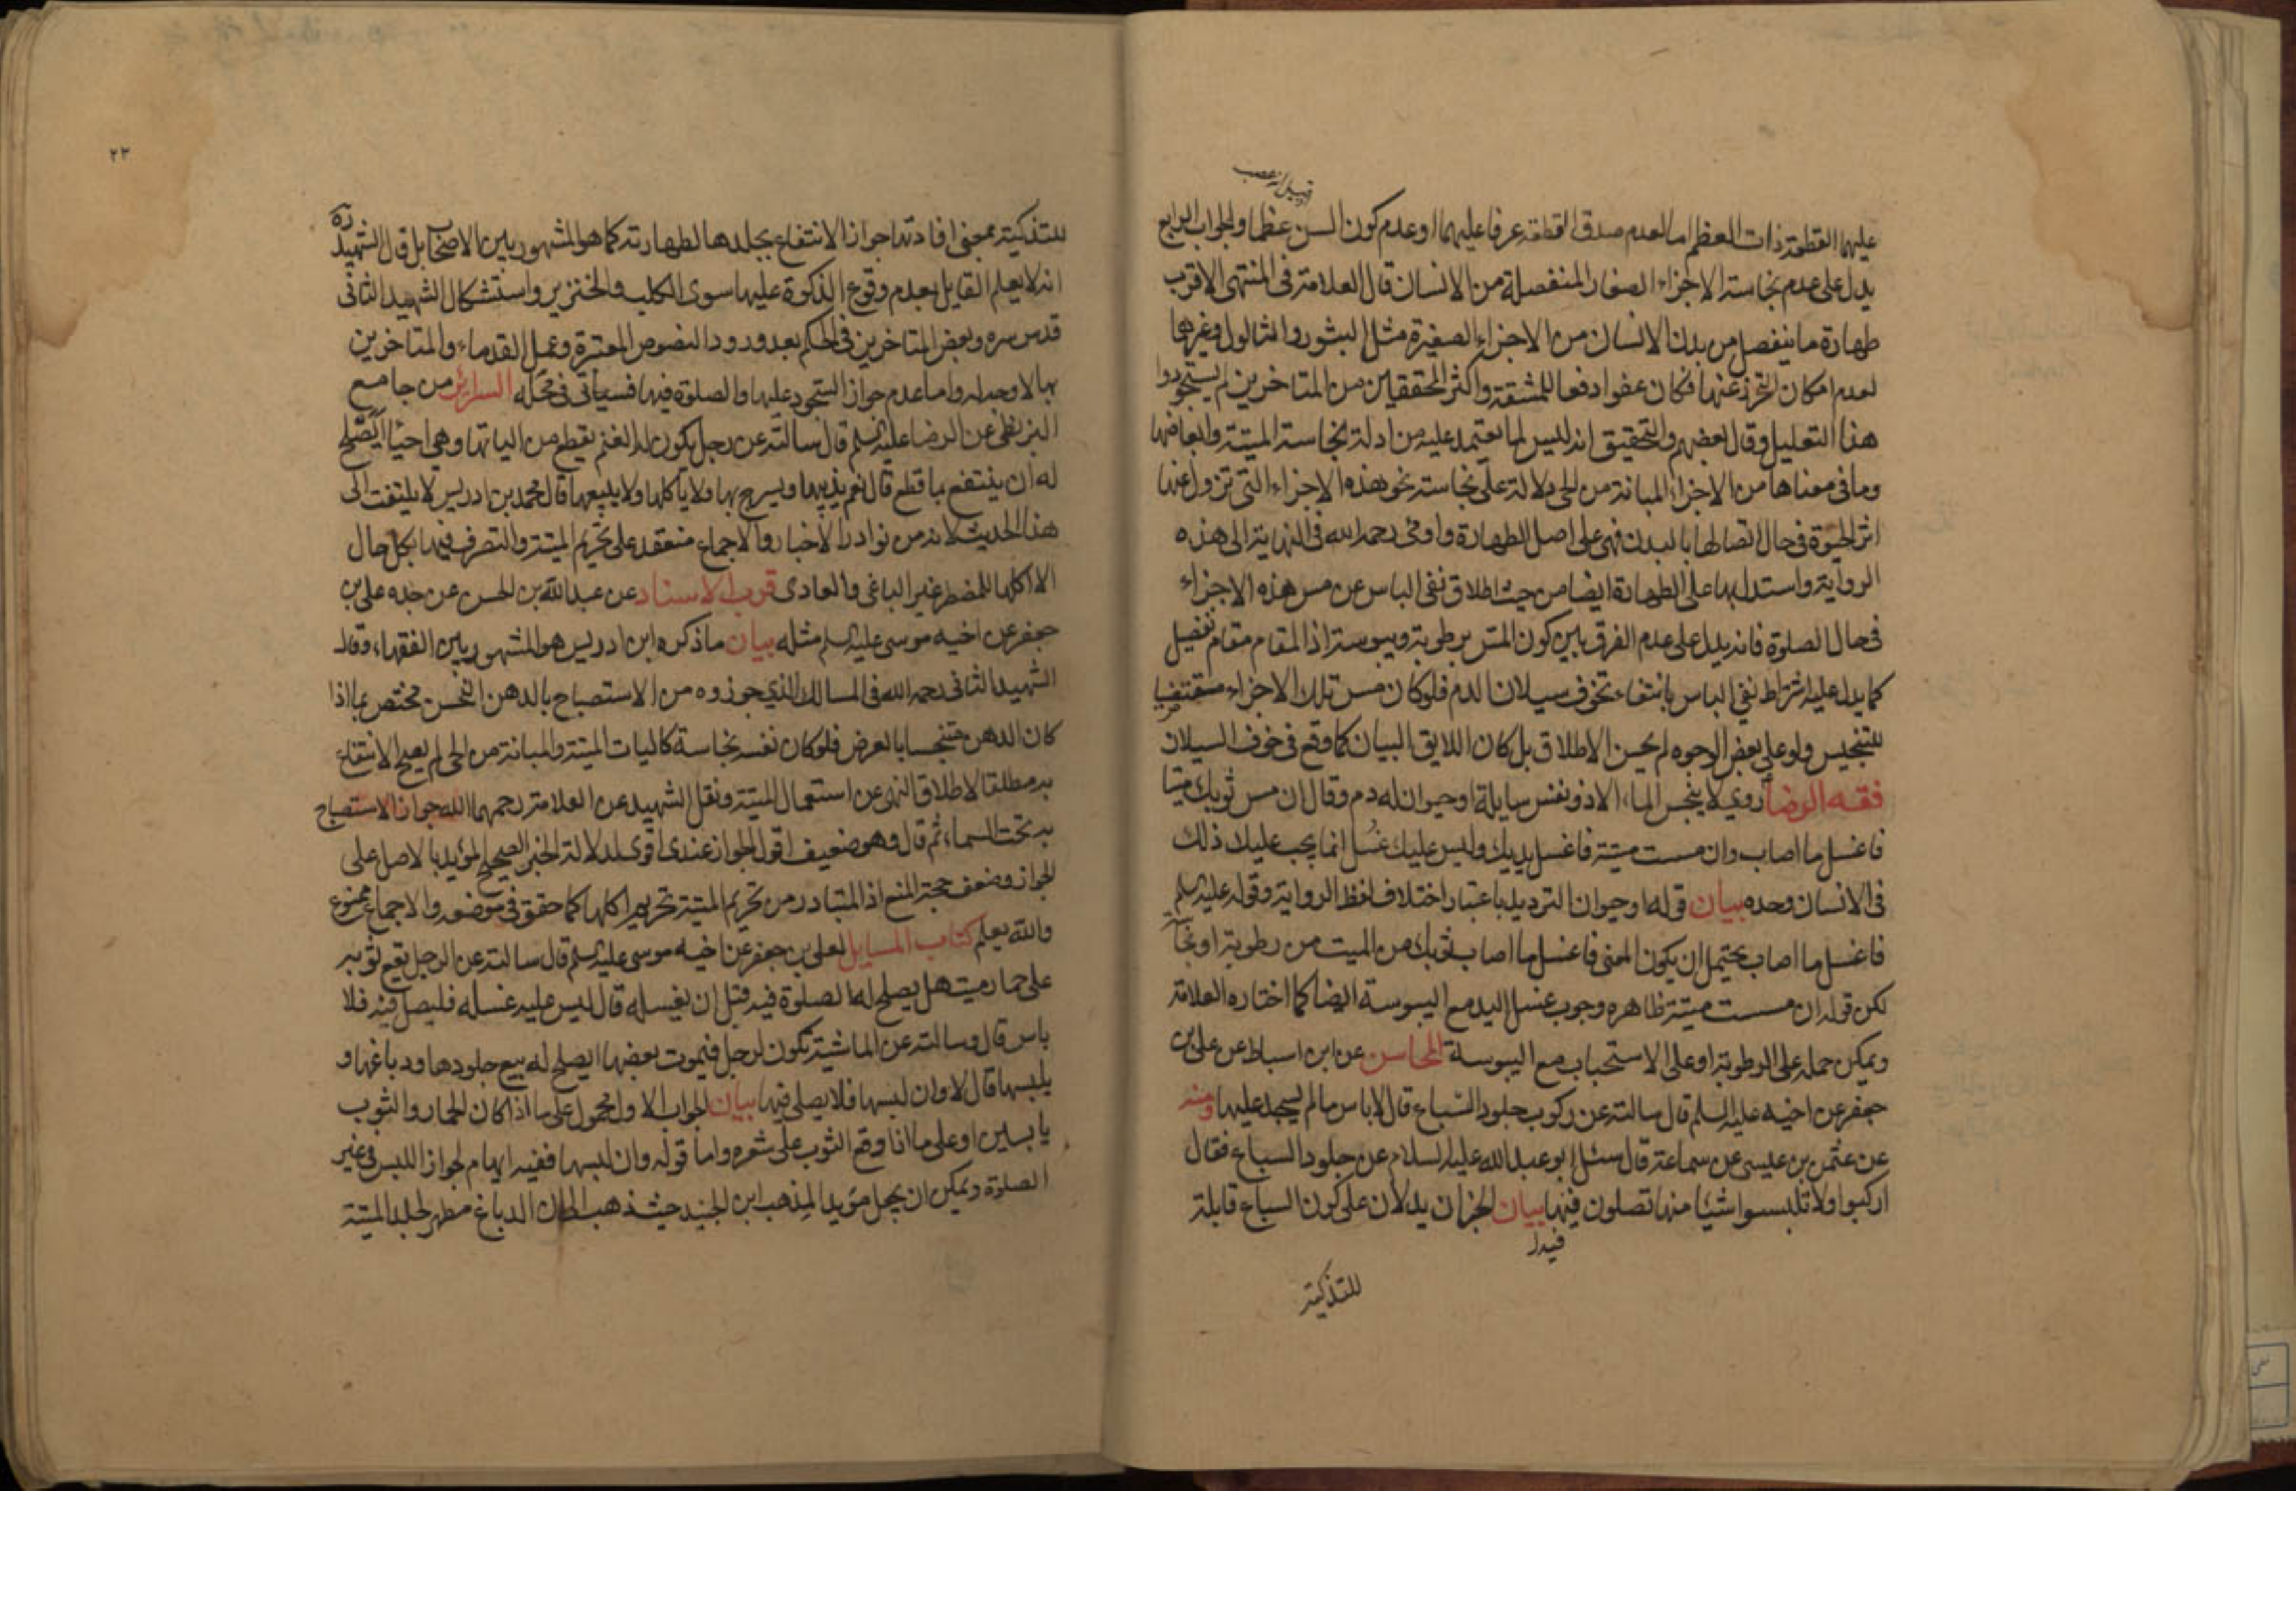 قبيل العصب
عليهما القطعة ذات العظم اما لعدم صدق القطعة عرفا عليهما او عدم كون السن عظما والجواب الرابع
يدل على عدم نجاسة الاجزاء الصغار المنفصلة من الانسان قال العلامة في المنتهى الاقرب
طهارة ما ينفصل من بدن الانسان من الاجزاء الصغيرة مثل البثور والثالول وغيرهما
لعدم امكان التحرز عنها فكان عفوا دفعا للمشقة واكثر المحققين من المتاخرين لم يستجودوا
هذا التعليل وقال بعضهم والتحقيق انه ليس لما يعتمد عليه من ادلة نجاسة الميتة وابعاضها
وما في معناها من الاجزاء المبانة من الحي دلالة على نجاسة نحو هذه الاجزاء التي تزول عنها
اثر الحيوة في حال اتصالها بالبدن فهي على اصل الطهارة واومى رحمه الله في النهاية الى هذه
الرواية واستدل بها على الطهارة ايضا من حيث اطلاق نفي الباس عن مس هذه الاجزاء
في حال الصلوة فانه يدل على عدم الفرق بين كون المس برطوبة ويبوسة اذ المقام مقام تفصيل
كما يدل عليه اشتراط نفي الباس بانتفاء تخوف سيلان الدم فلو كان مس تلك الاجزاء مقتضيا
للتنجيس ولو على بعض الوجوه لم يحسن الاطلاق بل كان اللايق البيان كما وقع في خوف السيلان
فقه الرضا روي لا ينجس الماء الا ذو نفس سايلة او حيوان له دم وقال ان مس ثوبك ميتا
فاغسل ما اصاب وان مسست ميتة فاغسل يديك وليس عليك غسل انما يجب عليك ذلك
في الانسان وحده بيان قوله او حيوان الترديد باعتبار اختلاف لفظ الرواية وقوله عليه السلم
فاغسل ما اصاب يحتمل ان يكون المعنى فاغسل ما اصاب ثوبك من الميت من رطوبة او نجاسة
لكن قوله ان مسست ميتة ظاهره وجوب غسل اليد مع اليبوسة ايضا كما اختاره العلامة
ويمكن حمله على الرطوبة او على الاستحباب مع اليبوسة المحاسن عن ابن اسباط عن علي بن
جعفر عن اخيه عليه السلم قال سالته عن ركوب جلود السباع قال لا باس ما لم يسجد عليها ومنه
عن عثمن بن عيسى عن سماعة قال سئل ابو عبد الله عليه السلام عن جلود السباع فقال
اركبوا ولا تلبسوا شيئا منها تصلون فيها بيان الخبران يدلان على كون السباع قابلة
للتذكية
٢٣
للتذكية بمعنى افادتها جواز الانتفاع بجلدها لطهارته كما هو المشهور بين الاصحاب بل قال الشهيد ره
انه لا يعلم القايل بعدم وقوع الذكوة عليها سوى الكلب والخنزير واستشكال الشهيد الثاني
قدس سره وبعض المتاخرين في الحكم بعد ورود النصوص المعتبرة وعمل القدماء والمتاخرين
بها لا وجه له واما عدم جواز السجود عليها والصلوة فيها فسياتي في محله السرائر من جامع
البزنطي عن الرضا عليه السلم قال سالته عن رجل يكون له الغنم يقطع من الياتها وهي احياء ايصلح
له ان ينتفع بما قطع قال نعم يذيبها ويسرج بها ولا ياكلها ولا يبيعها قال محمد بن ادريس لا يلتفت الى
هذا الحديث لانه من نوادر الاخبار والاجماع منعقد على تحريم الميتة والتصرف فيها بكل حال
الا اكلها للمضطر غير الباغي والعادي قرب الاسناد عن عبد الله بن الحسن عن جده علي بن
جعفر عن اخيه موسى عليه السلم مثله بيان ما ذكره ابن ادريس هو المشهور بين الفقهاء وقال
الشهيد الثاني رحمه الله في المسالك الذي جوزوه من الاستصباح بالدهن النجس مختص بما اذا
كان الدهن متنجسا بالعرض فلو كان نفسه نجاسة كاليات الميتة والمبانة من الحي لم يصح الانتفاع
به مطلقا لاطلاق النهي عن استعمال الميتة ونقل الشهيد عن العلامة رحمهما الله جواز الاستصباح
به تحت السماء ثم قال وهو ضعيف اقول الجواز عندي اقوى لدلالة الخبر الصحيح المؤيد بالاصل على
الجواز وضعف حجة المنع اذ المتبادر من تحريم الميتة تحريم اكلها كما حقق في موضعه والاجماع ممنوع
والله يعلم كتاب المسايل لعلي بن جعفر عن اخيه موسى عليه السلم قال سالته عن الرجل يقع ثوبه
على حمار ميت هل يصلح له الصلوة فيه قبل ان يغسله قال ليس عليه غسله فليصل فيه فلا
باس قال وسالته عن الماشية تكون لرجل فيموت بعضها ايصلح له بيع جلودها ودباغها و
يلبسها قال لا وان لبسها فلا يصلي فيها بيان الجواب الاول محمول على ما اذا كان الحمار والثوب
يابسين او على ما اذا وقع الثوب على شعره واما قوله وان لبسها ففيه ايهام لجواز اللبس في غير
الصلوة ويمكن ان يجعل مؤيدا لمذهب ابن الجنيد حيث ذهب الى ان الدباغ مطهر لجلد الميتة